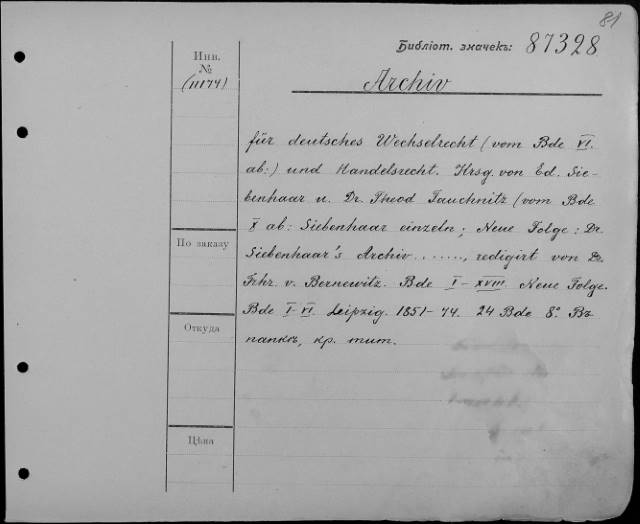 81
Библіот. значекъ: 87328
Инв.
№
(11174)
Archiv
für deutsches Wechselrecht (vom Bde VI.
ab:) und Handelsrecht. Hrsg. von Ed. Sie-
benhaar u. Dr. Theod Tauchnitz (vom Bde
X ab: Siebenhaar einzeln; Neue Folge: Dr.
Siebenhaar's Archiv ......., redigirt von Dr.
Frhr. v. Bernewitz. Bde I-XVIII Neue Folge.
Bde I-VI. Leipzig. 1851-74. 24 Bde 8º. Въ
папкѣ, кр. тит.
По заказу
Откуда
Цѣна